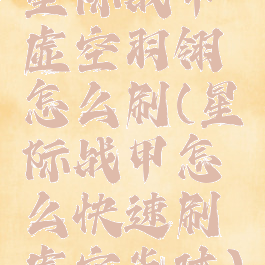 星际战甲
虚空羽翎
怎么刷(星
际战甲怎
么快速刷
虚空